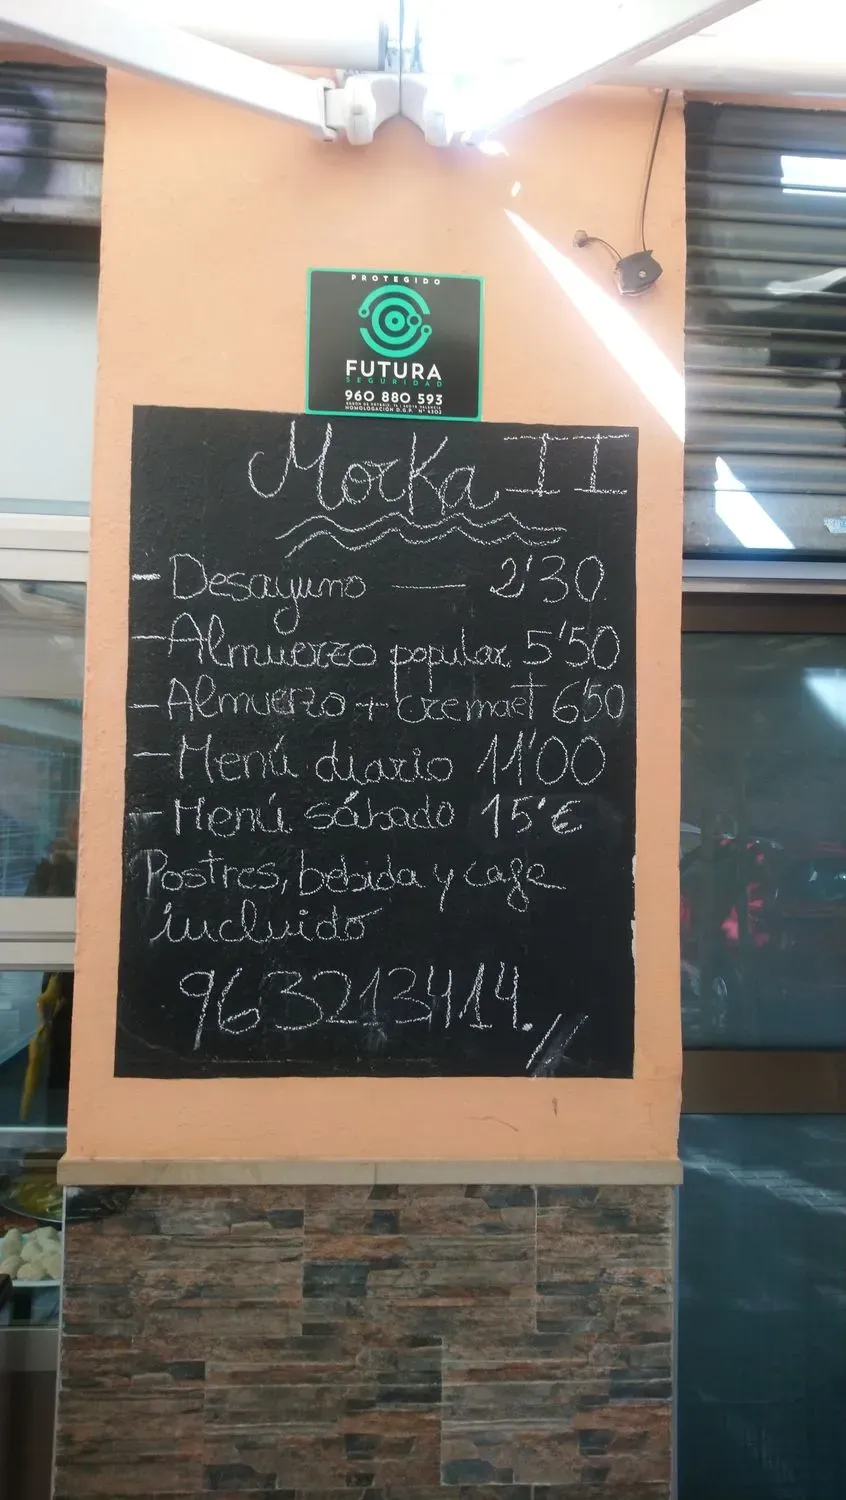 PROTEGIDO
FUTURA
SEGURIDAD
960 880 593
HOMOLOGACIÓN D.G.P. Nº 4302
Morka II
- Desayuno — 2'30
- Almuerzo popular 5'50
- Almuerzo + cremaet 6'50
- Menú diario 11'00
- Menú sábado 15'€
Postres, bebida y cafe
incluido
963213414.//